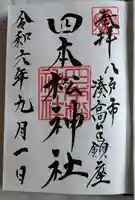 奉拝
八戸市
湊高台鎮座
四本松神社
令和六年九月一日